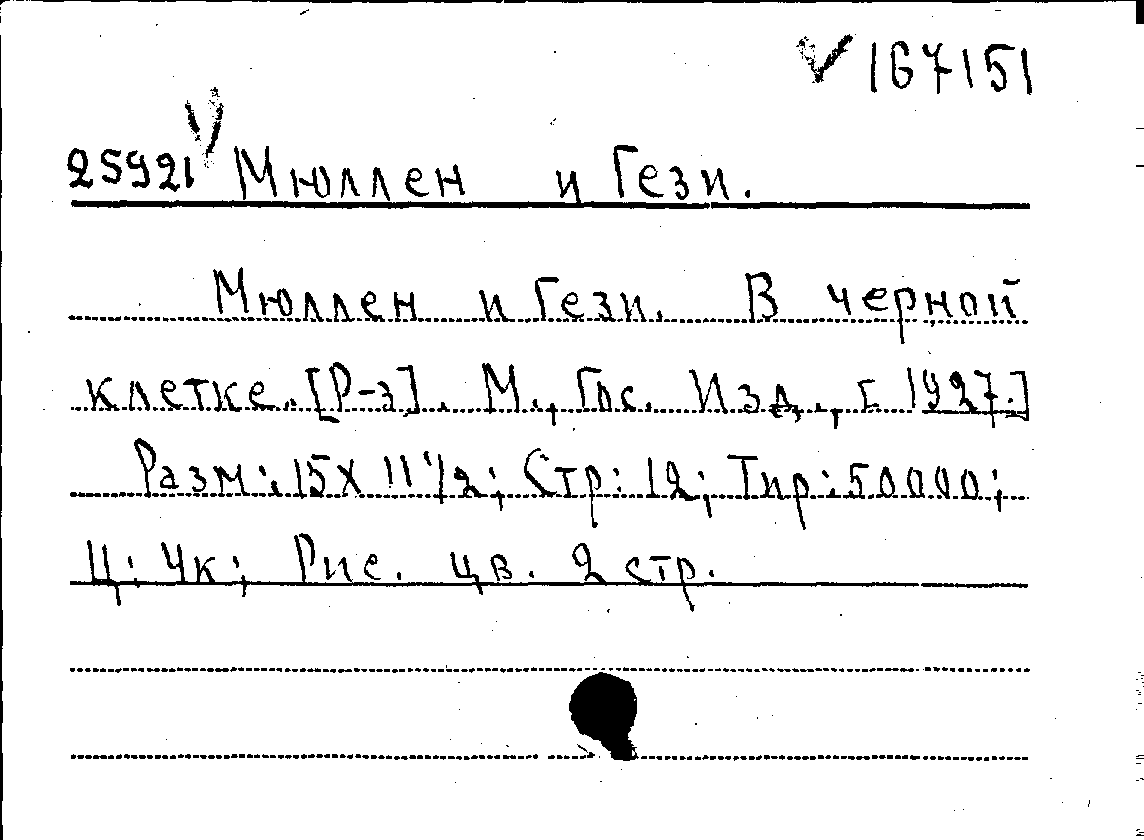 167151
25921 Мюллен и Гези.
Мюллен и Гези. В черной
клетке. [Р-з]. М., Гос. Изд., [1927.]
Разм: 15 X 11 1/2; Стр: 12; Тир: 50000;
Ц: 4к; Рис. цв. 2 стр.